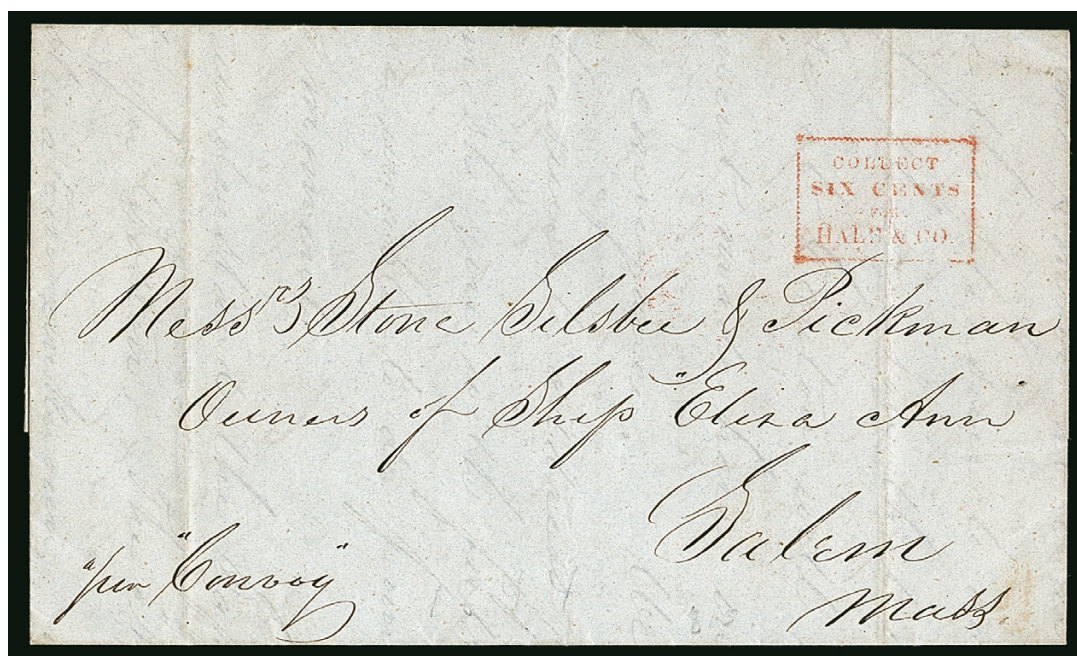 COLLECT
SIX CENTS
FOR
HALE & CO.
Messrs Stone Silsbee & Pickman
Owners of Ship "Eliza Ann"
Salem
Mass.
per "Convoy"